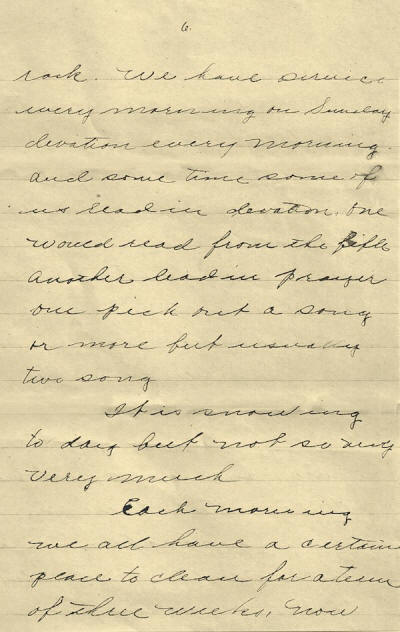 6.
rock. We have service
every morning on Sunday
devation every morning.
and some time some of
us lead in devation. One
would read from the Bible
another lead in prayer
one pick out a song
or more but usually
two song
It is snowing
to day but not so very
very much
Each morning
we all have a certain
place to clean for a term
of three weeks, now